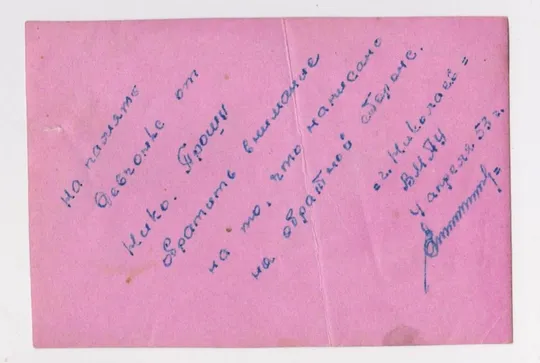 на память
девчонке от
Нико. Прошу
обратить внимание
на то, что написано
на обратной стороне.
г. Николаев =
ВМАУ
4 апреля 53 г.